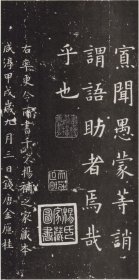 寡聞愚蒙等誚
謂語助者焉哉
乎也
右率更令書千文楊補之家藏本
咸淳甲戌歲九月三日錢唐金應桂